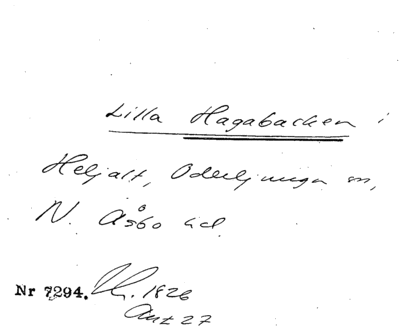 Lilla Hagabacken i
Heljalt, Oderljunga sn,
N. Åsbo hd.
Nr 7294. 1826
Ant 27